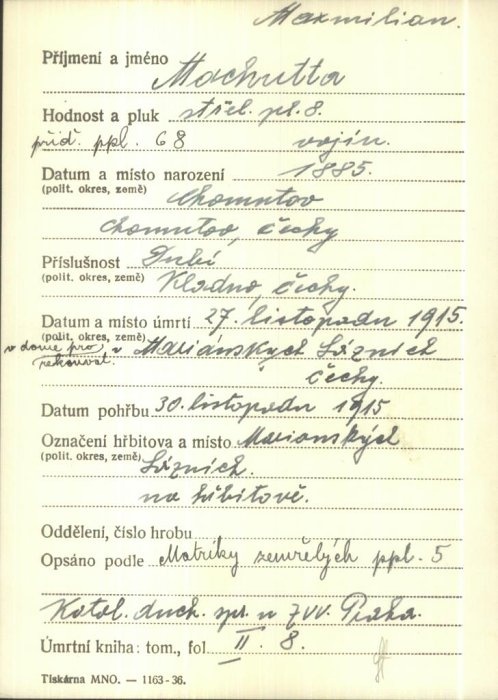 Maxmilian.
Příjmení a jméno Machutta
Hodnost a pluk střel. pl. 8.
příd. ppl. 68 vojín.
Datum a místo narození 1885.
(polit. okres, země) Chomutov
Chomutov, Čechy
Příslušnost Dubí
(polit. okres, země) Kladno, Čechy.
Datum a místo úmrtí 27. listopadu 1915.
(polit. okres, země)
v domě pro rekonval. v Mariánských Lázních
Čechy.
Datum pohřbu 30. listopadu 1915
Označení hřbitova a místo Marianských
(polit. okres, země) Lázních.
na hřbitově.
Oddělení, číslo hrobu
Opsáno podle Matriky zemřelých ppl. 5
Katol. duch. spr. u ZVV. Praha.
Úmrtní kniha: tom., fol II. 8.
Tiskárna MNO. — 1163-36.